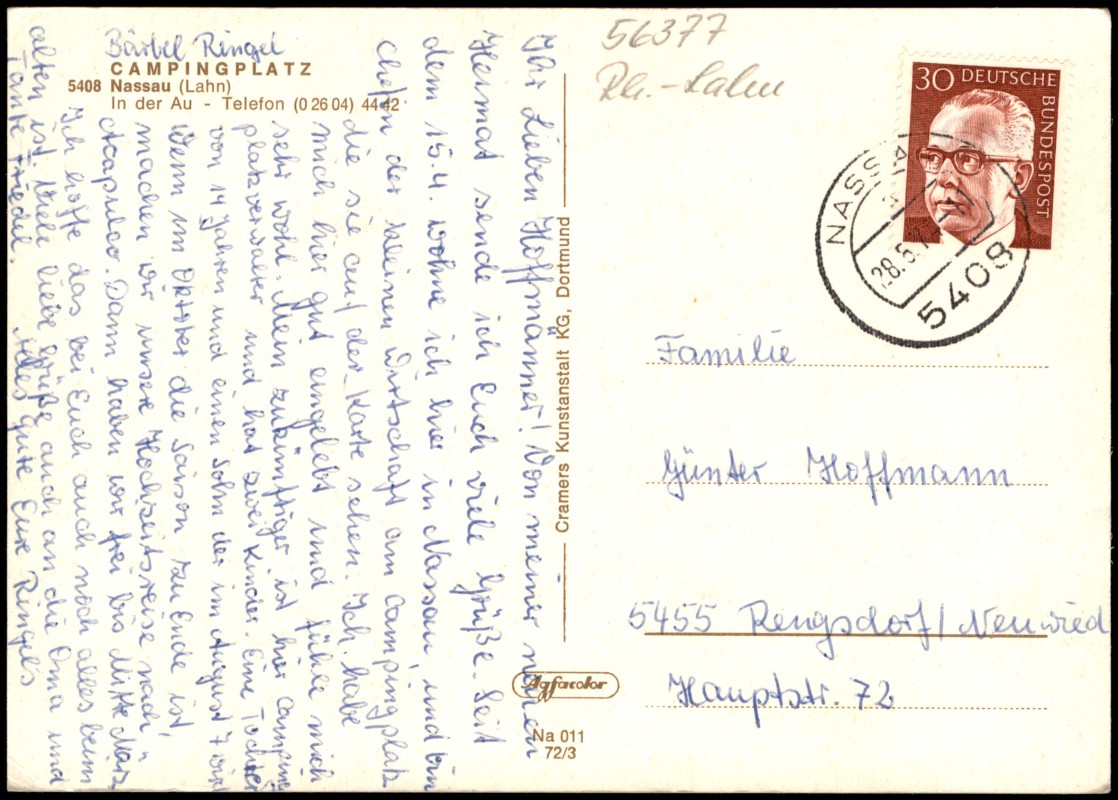 Bärbel Ringel
CAMPINGPLATZ
5408 Nassau (Lahn)
In der Au - Telefon (0 26 04) 44 42
Ihr Lieben Hoffmänner! Von meiner neuen
Heimat sende ich Euch viele Grüße. Seit
dem 15.4. wohne ich hier in Nassau und bin
Chefin der kleinen Wirtschaft am Campingplatz
die sie auf der Karte sehen. Ich habe
mich hier gut eingelebt und fühle mich
sehr wohl. Mein zukünftiger ist hier Camping
platzverwalter und hat zwei Kinder. Eine Tochter
von 14 Jahren und einen Sohn der im August 7 wird
Wenn im Oktober die Saison zu Ende ist,
machen wir unsere Hochzeitsreise nach
Acapulco. Dann haben wir frei bis Mitte März
Ich hoffe das bei Euch auch noch alles beim
alten ist. Viele liebe Grüße auch an die Oma und
Tante Friedel. Alles gute Eure Ringel's
Cramers Kunstanstalt KG, Dortmund
Agfacolor
Na 011
72/3
56377
Rh.-Lahn
30 DEUTSCHE
BUNDESPOST
NASSAU
28.5.
5408
Familie
Günter Hoffmann
5455 Rengsdorf/Neuwied
Hauptstr. 72